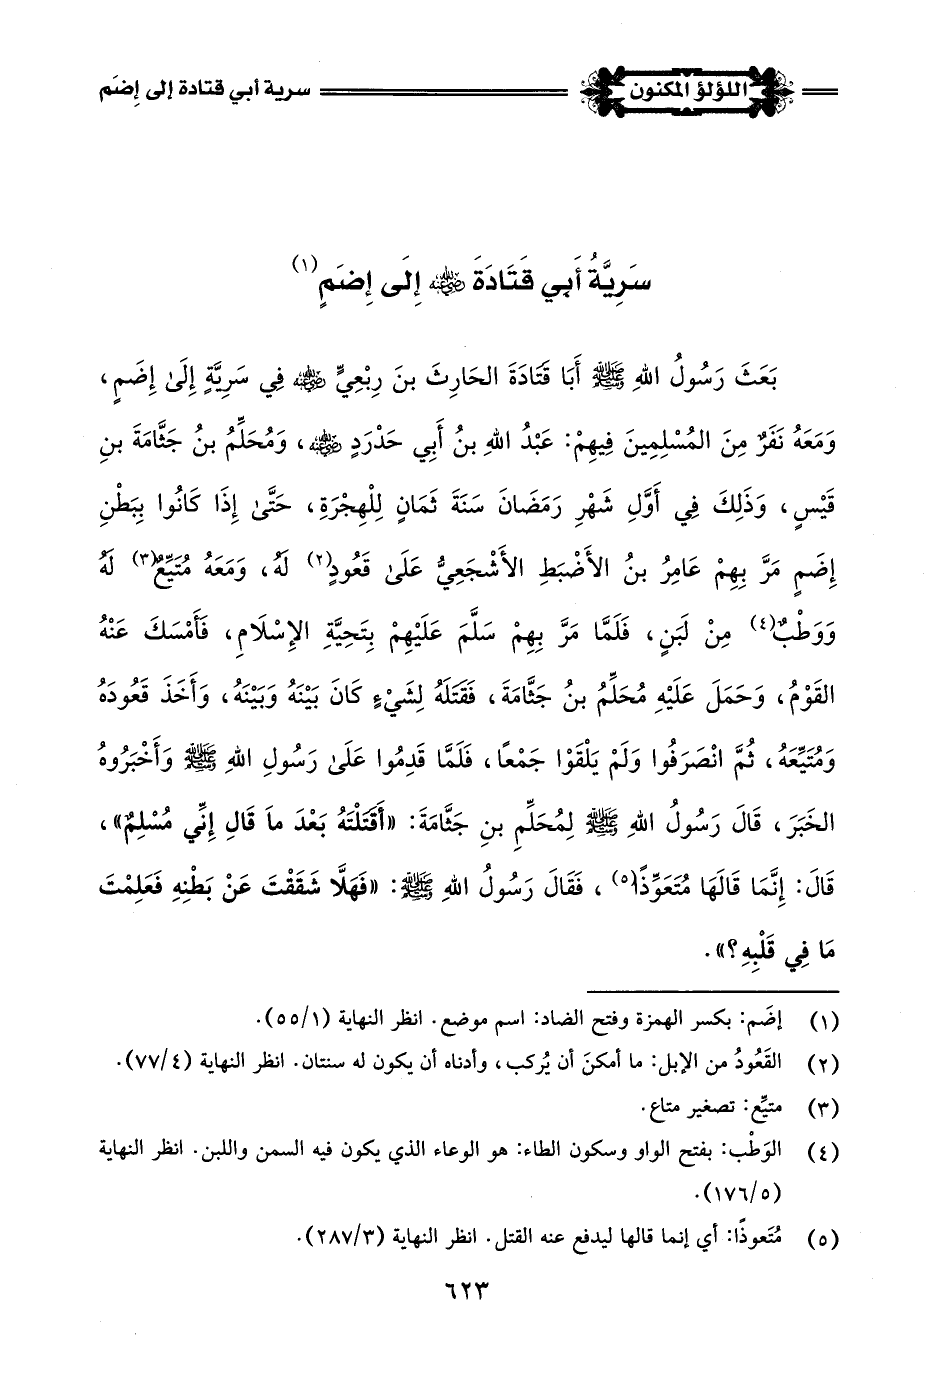 اللؤلؤ المكنون سرية أبي قتادة إلى إضم
سَرِيَّةُ أَبِي قَتَادَةَ رضي الله عنه إِلَى إِضَمٍ(١)
بَعَثَ رَسُولُ اللهِ ﷺ أَبَا قَتَادَةَ الحَارِثَ بنَ رِبْعِيٍّ رضي الله عنه فِي سَرِيَّةٍ إِلَىٰ إِضَمٍ،
وَمَعَهُ نَفَرٌ مِنَ المُسْلِمِينَ فِيهِمْ: عَبْدُ اللهِ بنُ أَبِي حَدْرَدٍ رضي الله عنه، وَمُحَلِّمُ بنُ جَثَّامَةَ بنِ
قَيْسٍ، وَذَلِكَ فِي أَوَّلِ شَهْرِ رَمَضَانَ سَنَةَ ثَمَانٍ لِلْهِجْرَةِ، حَتَّىٰ إِذَا كَانُوا بِبَطْنِ
إِضَمٍ مَرَّ بِهِمْ عَامِرُ بنُ الأَضْبَطِ الأَشْجَعِيُّ عَلَىٰ قَعُودٍ(٢) لَهُ، وَمَعَهُ مُتَيِّعٌ(٣) لَهُ
وَوَطْبٌ(٤) مِنْ لَبَنٍ، فَلَمَّا مَرَّ بِهِمْ سَلَّمَ عَلَيْهِمْ بِتَحِيَّةِ الإِسْلَامِ، فَأَمْسَكَ عَنْهُ
القَوْمُ، وَحَمَلَ عَلَيْهِ مُحَلِّمُ بنُ جَثَّامَةَ، فَقَتَلَهُ لِشَيْءٍ كَانَ بَيْنَهُ وَبَيْنَهُ، وَأَخَذَ قَعُودَهُ
وَمُتَيِّعَهُ، ثُمَّ انْصَرَفُوا وَلَمْ يَلْقَوْا جَمْعًا، فَلَمَّا قَدِمُوا عَلَىٰ رَسُولِ اللهِ ﷺ وَأَخْبَرُوهُ
الخَبَرَ، قَالَ رَسُولُ اللهِ ﷺ لِمُحَلِّمِ بنِ جَثَّامَةَ: «أَقَتَلْتَهُ بَعْدَ ماَ قَالِ إِنِّي مُسْلِمٌ»،
قَالَ: إِنَّمَا قَالَهَا مُتَعَوِّذًا(٥)، فَقَالَ رَسُولُ اللهِ ﷺ: «فَهَلَّا شَقَقْتَ عَنْ بَطْنِهِ فَعَلِمْتَ
مَا فِي قَلْبِهِ؟».
(١) إضَم: بكسر الهمزة وفتح الضاد: اسم موضع. انظر النهاية (٥٥/١).
(٢) القَعُودُ من الإبل: ما أمكنَ أن يُركب، وأدناه أن يكون له سنتان. انظر النهاية (٧٧/٤).
(٣) متيِّع: تصغير متاع.
(٤) الوَطْب: بفتح الواو وسكون الطاء: هو الوعاء الذي يكون فيه السمن واللبن. انظر النهاية
(١٧٦/٥).
(٥) مُتَعوذًا: أي إنما قالها ليدفع عنه القتل. انظر النهاية (٢٨٧/٣).
٦٢٣